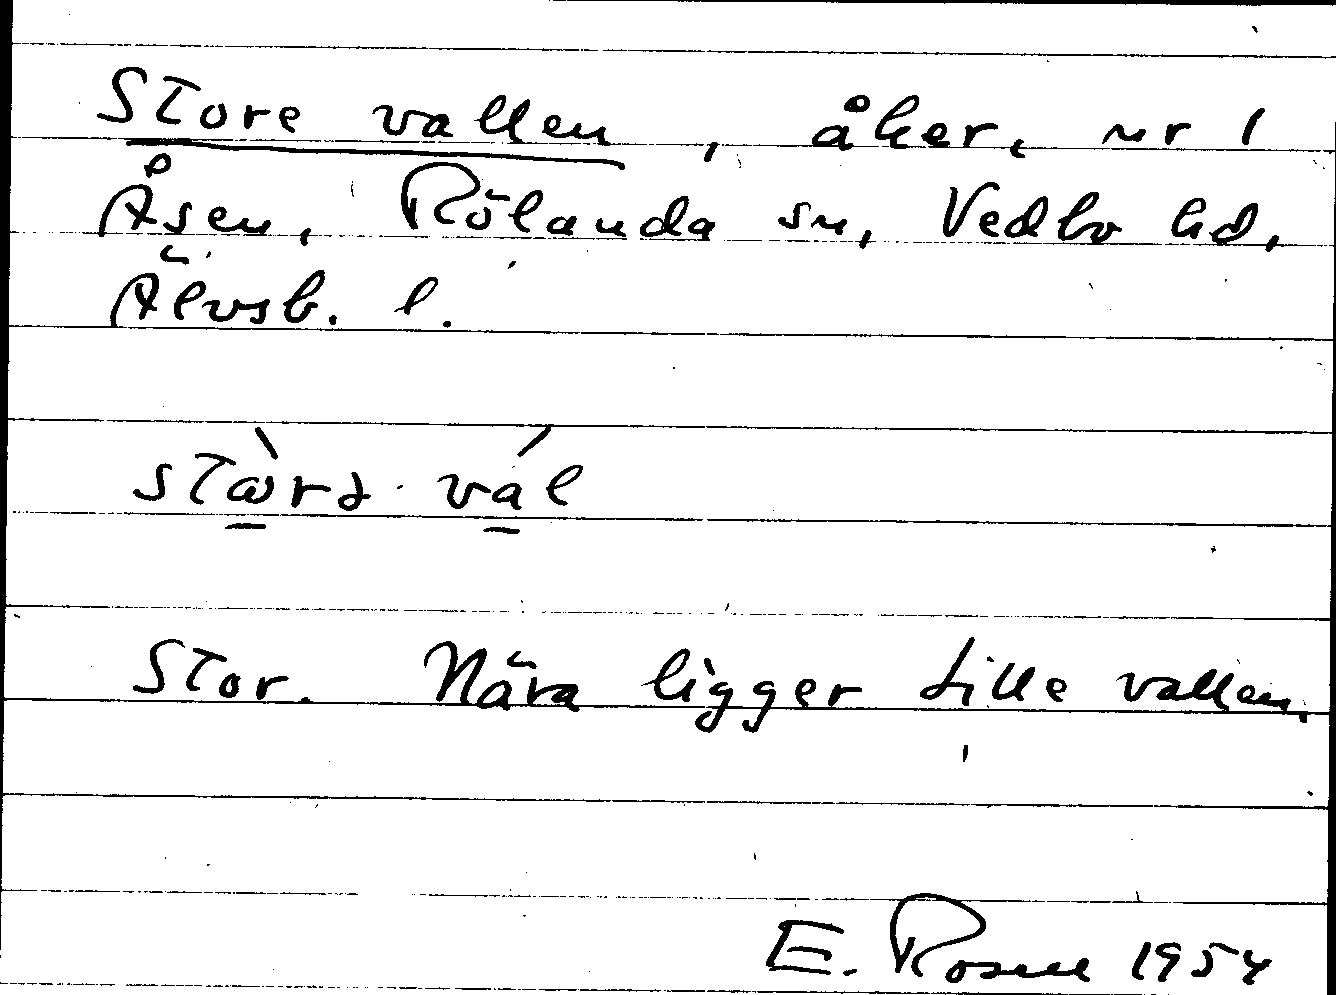 Store vallen, åker, nr 1
Åsen, Rölanda sn, Vedbo hd,
Älvsb. l.
stὼrə vál
Stor. Nära ligger Lille vallen.
E. Rosell 1954